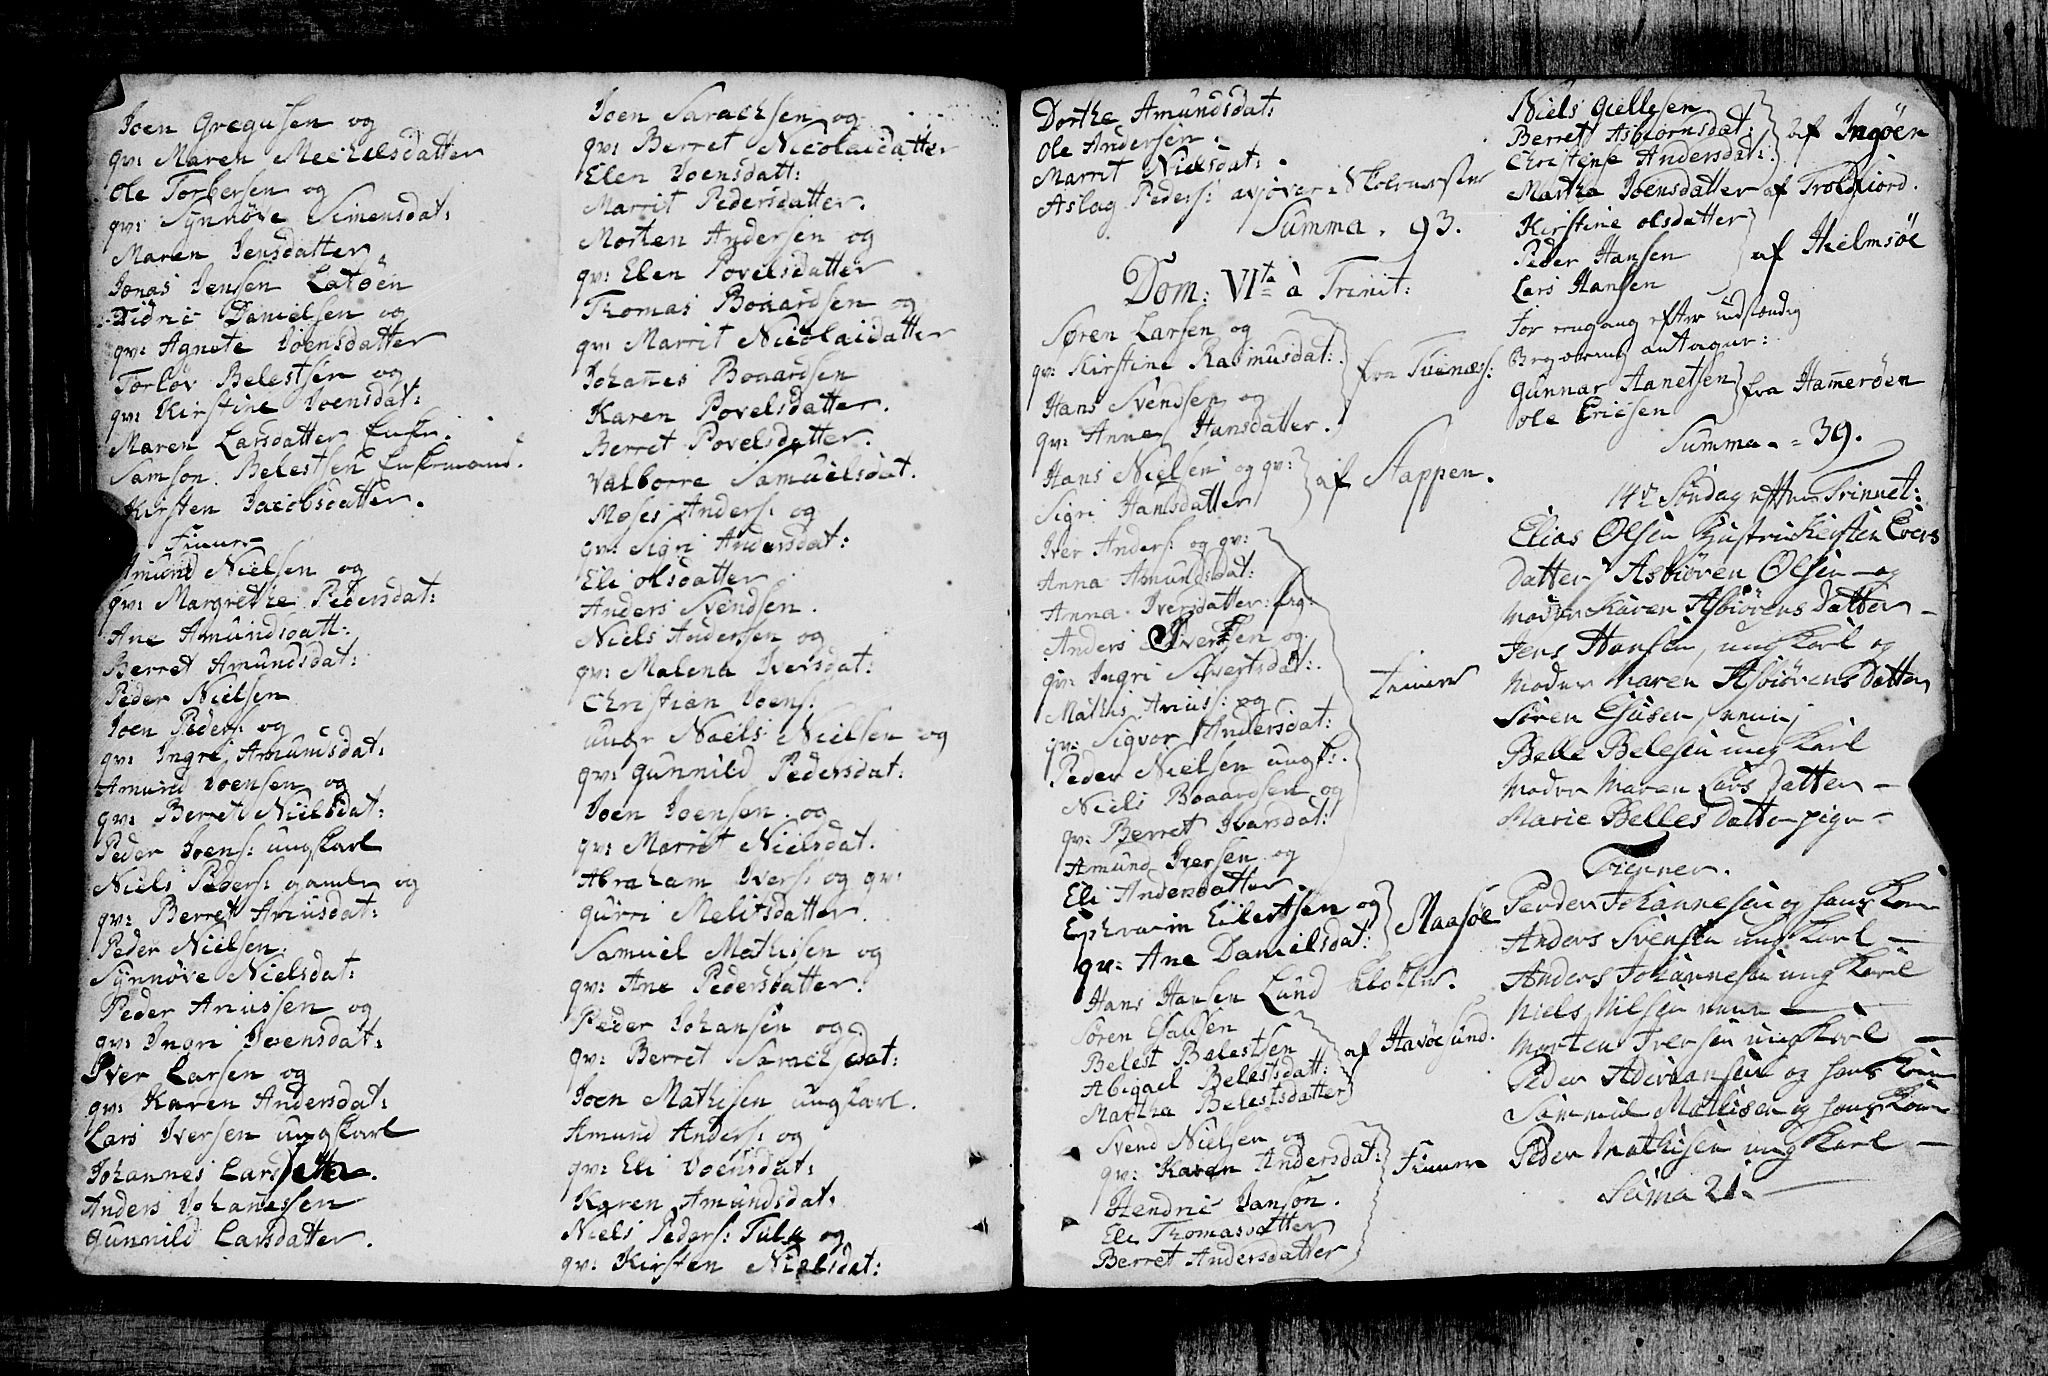 Joen Gregusen og
qv: Maren Mechelsdatter
Ole Torbersen og
qv: Synnöve Simensdat:
Maren Jensdatter
Jonas Jensen Latöen
Didric Danielsen og
qv: Agnete Joensdatter
Torlov Belestsen og
qv: Kirstine Joensdat:
Maren Larsdatter Enke.
Samson Belestsen Enkemand.
Kirsten Jacobsdatter.
Finner
Amund Nielsen og
qv: Margrethe Pedersdat:
Ane Amundsdatt:
Berret Amundsdat:
Peder Nielsen
Joen Peders: og
qv: Ingri Amundsdat:
Amund Joensen og
qv: Berret Nielsdat:
Peder Joens: ungkarl
Niels Peders: gamle og
qv: Berret Ariusdat:
Peder Nielsen.
Synnöve Nielsdat:
Peder Ariussen og
qv: Ingri Joensdat:
Iver Larsen og
qv: Karen Andersdat:
Lars Iversen ungkarl
Johannes Larssen.
Anders Johanessen
Gunnild Larsdatter.
Joen Sarachsen og
qv: Berret Nicolaidatter
Elen Joensdatt:
Marrit Pedersdatter.
Morten Andersen og
qv: Elen Povelsdatter
Thomas Boaardsen og
qv: Marrit Nicolaidatter
Johanes Boaardsen
Karen Povelsdatter.
Berret Povelsdatter.
Valborre Samuelsdat.
Moses Anders: og
qv: Sigri Andersdat:
Eli Olsdatter
Anders Svendsen.
Niels Andersen og
qv: Malena Iversdat:
Christian Joens:
unge Niels Nielsen og
qv: Gunnild Pedersdat:
Joen Joensen og
qv: Marrit Nielsdat.
Abraham Ivers: og qv:
Gurri Melitsdatter.
Samuel Mathisen og
qv: Ane Pedersdatter.
Peder Johansen og
qv: Berret Sarachsdat:
Joen Mathisen ungkarl.
Amund Anders: og
qv: Eli Joensdat:
Karen Amundsdat:
Niels Peders: Tulu og
qv: Kirsten Nielsdat:
Dorthe Amundsdat:
Ole Andersen.
Marrit Nielsdat:
Aslag Peders:
Summa. 93.
Dom: VIta à Trinit:
Sören Larsen og
qv: Kirstine Rasmusdat: fra Tuenæs:
Hans Svendsen og
qv: Anne Hansdatter.
Hans Nielsen og qv: af Stappen.
Sigri Hansdatter
Iver Anders: og qv:
Anna Amundsdat:
Anna Iversdatter:
Anders Iversen og
qv: Ingri Sivertsdat:
Mathis Arius: og Finner
qv: Sigvor Andersdat:
Peder Nielsen ungk:.
Niels Boaardsen og
qv: Berret Ivarsdat:
Amund Iversen og
Eli Andersdatter
Ephraim Eilertsen og Maasöe
qv: Ane Danielsdat:
Hans Hansen Lund Klokker.
Sören Esausen
Belest Belestsen af Havöesund.
Abigael Belestsdatt:
Martha Belestsdatter
Svend Nielsen og
qv: Karen Andersdat: Finner
Hendric Janson.
Eli Thomasdatter
Berret Andersdatter
Niels Gjellesen
Berret Asbiornsdat: af Ingöen
Christine Andersdat:
Martha Joensdatter af Troldfiord.
Kirstine Olsdatter
Peder Hansen af Hielmsöe
Lars Hansen
For eengang efter indstændig
Begæring antagne:
Gunnar Aanetsen fra Hameröen
Ole Ericsen
Summa - = 39.
14de Söndag efter Trinnet:
Elias Olsen Hustrue Kirsten Evers
Datter Asbiören Olsen og
Moder Karen Asbiörens Datter
Jens Hansen, ung Karl og
Moder Maren Asbiörens Datter
Sören Esusen
Belle Belesen ung Karl
Moder Maren Lars Datter
Marie Belles Datter pige
Fienner.
Peder Johannesen og hans Kone
Anders Svensen ung Karl
Anders Johannesen ung Karl
Niels Nilsen
Morten Iversen ung Karl
Peder Aderiansen og hans Kone
Sammuel Mathisen og hans Kone
Peder Mathisen ung Karl
Suma 21.